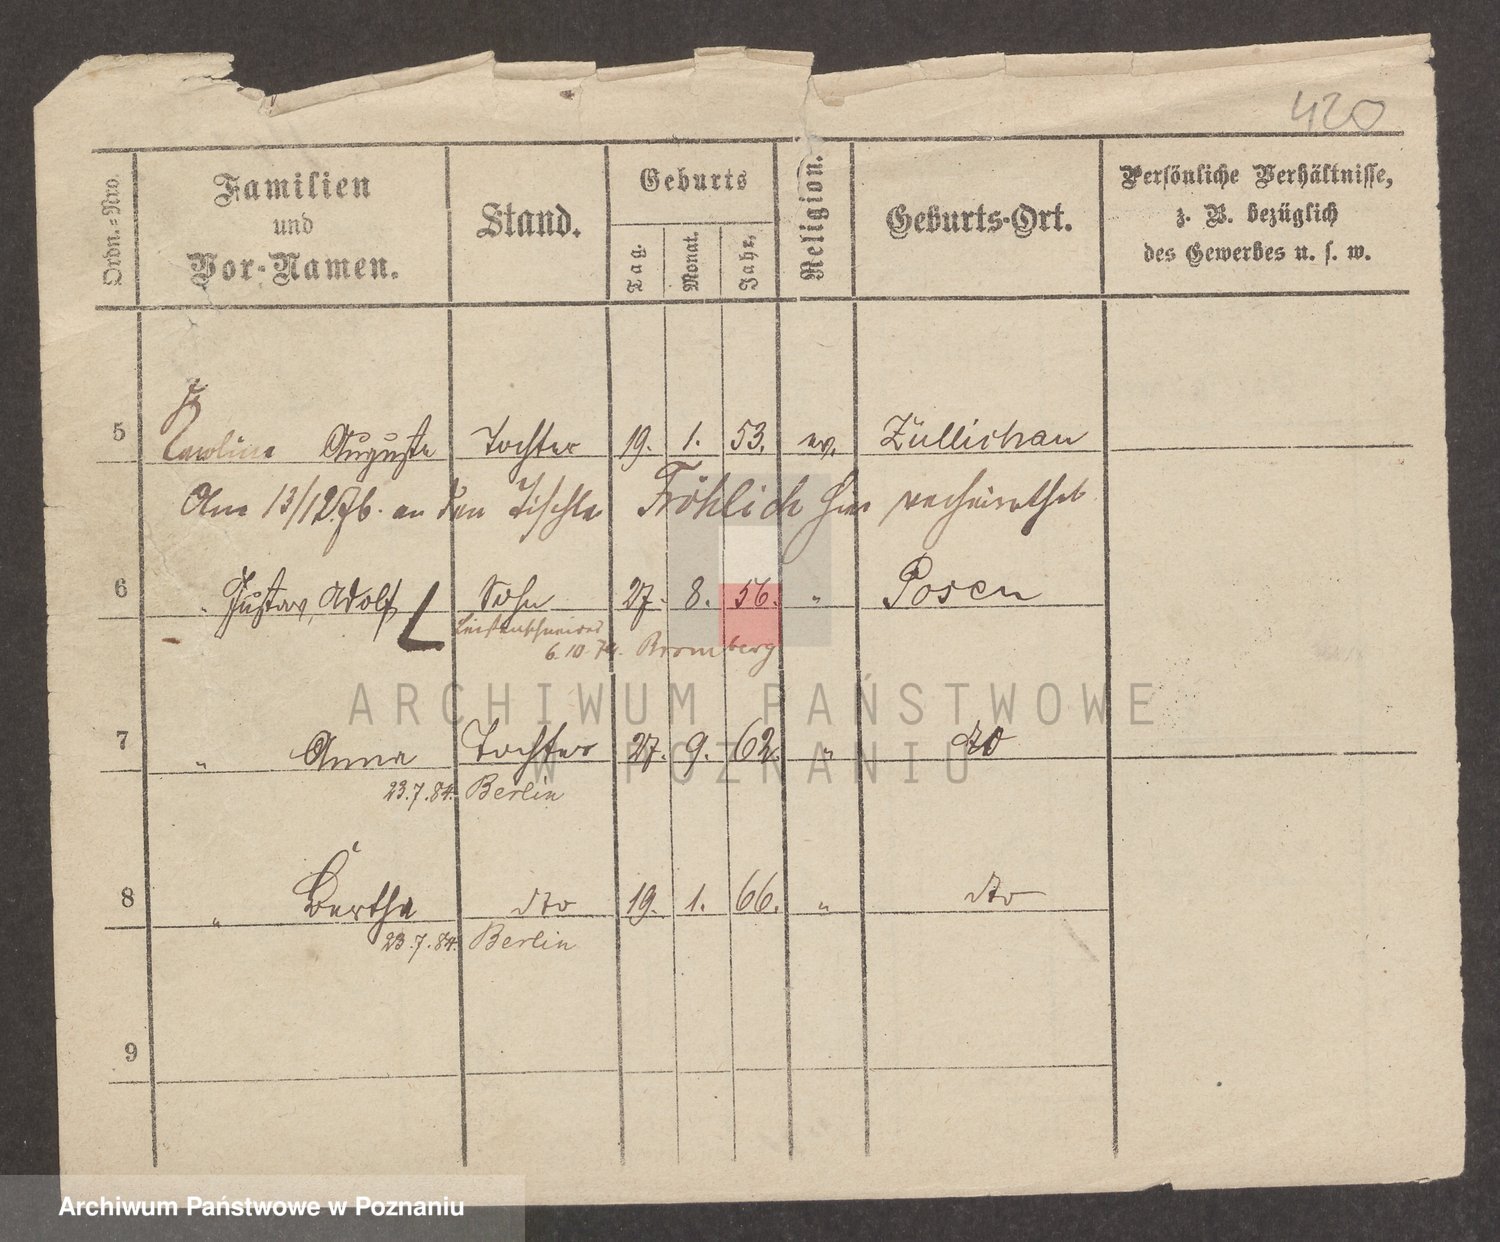 420
Ordn.-Nro.
Familien
und
Vor-Namen.
Stand.
Geburts
Tag.
Monat.
Jahr.
Religion.
Geburts-Ort.
Persönliche Verhältnisse,
z. B. bezüglich
des Gewerbes u. s. w.
5 Karoline Auguste Tochter 19. 1. 53. ev. Züllichau
Am 13/12.76. an den Tischler Fröhlich hier verheirathet
6 " Gustav Adolf Sohn 27. 8. 56. " Posen
6.10.74. Bromberg
7 " Anna Tochter 27. 9. 62. " dto
23.7.84. Berlin
8 " Bertha dto 19. 1. 66. " dto
23.7.84. Berlin
9
ARCHIWUM PAŃSTWOWE
W POZNANIU
Archiwum Państwowe w Poznaniu